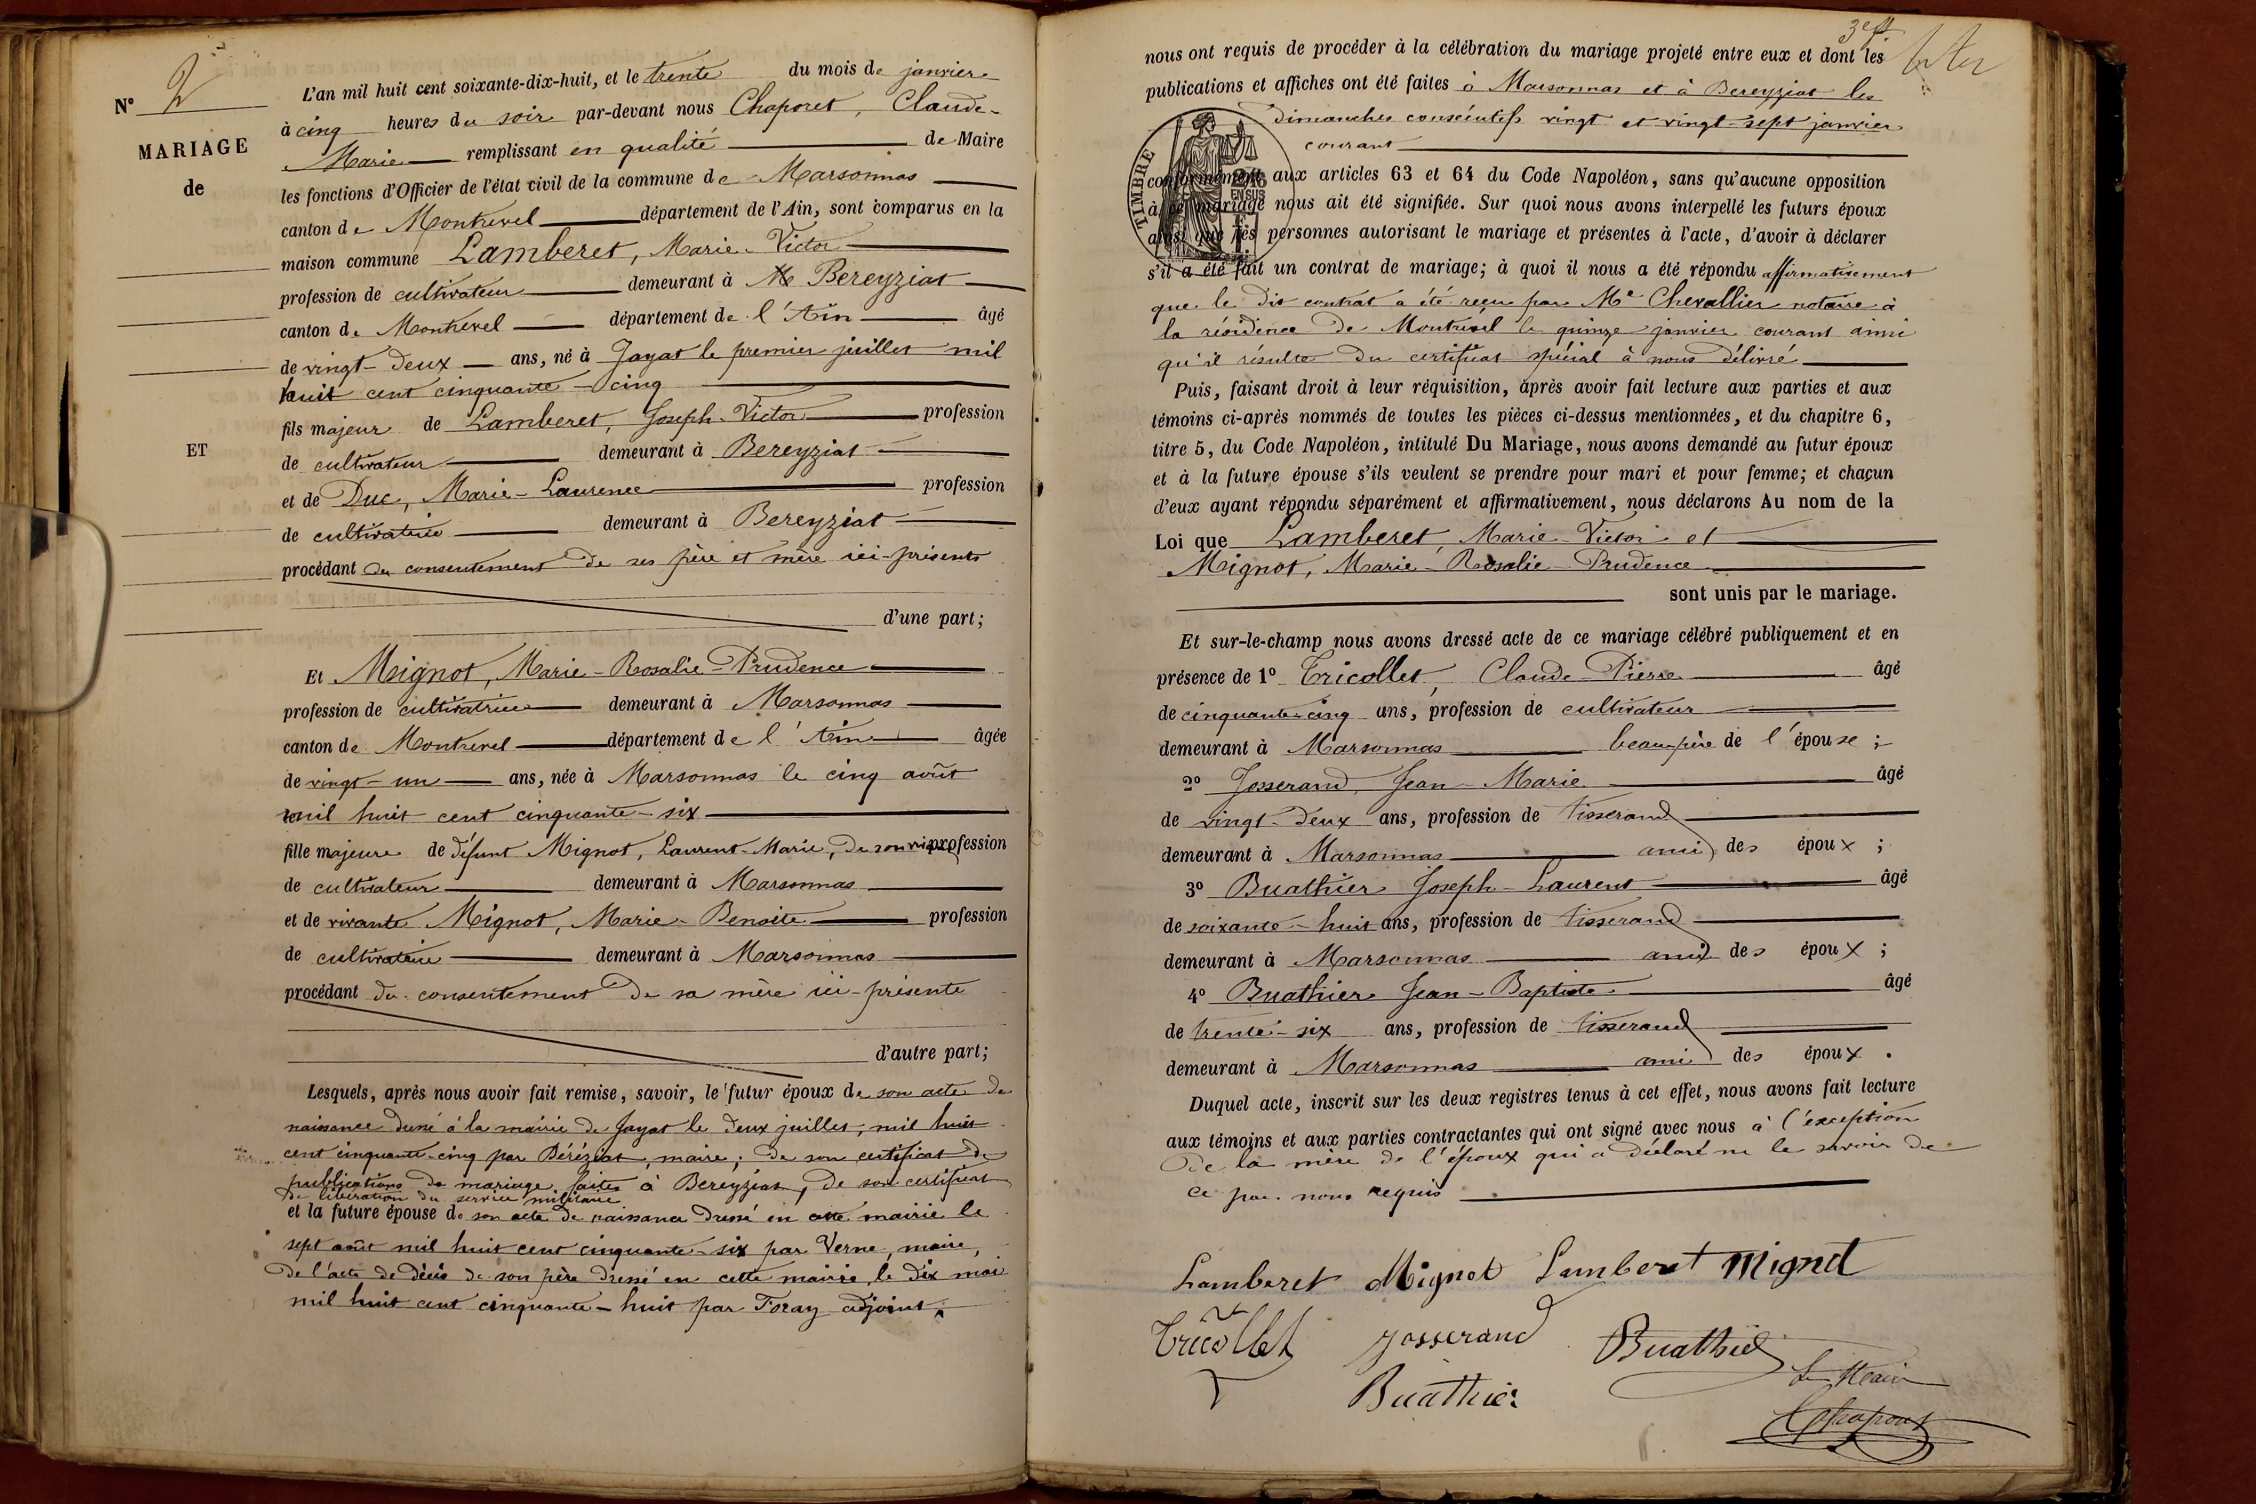 N° 2
MARIAGE
de
ET
L'an mil huit cent soixante-dix-huit, et le trente du mois de janvier
à cinq heures du soir par-devant nous Chaporet, Claude-
Marie remplissant en qualité de Maire
les fonctions d'Officier de l'état civil de la commune de Marsonnas
canton de Montrevel département de l'Ain, sont comparus en la
maison commune Lamberet, Marie-Victor
profession de cultivateur demeurant à Bereyziat
canton de Montrevel département de l'Ain âgé
de vingt-deux ans, né à Jayat le premier juillet mil
huit cent cinquante-cinq
fils majeur de Lamberet, Joseph-Victor profession
de cultivateur demeurant à Bereyziat
et de Duc, Marie-Laurence profession
de cultivatrice demeurant à Bereyziat
procédant du consentement de ses père et mère ici-présents
d'une part;
Et Mignot, Marie-Rosalie-Prudence
profession de cultivatrice demeurant à Marsonnas
canton de Montrevel département de l'Ain âgée
de vingt-un ans, née à Marsonnas le cinq août
mil huit cent cinquante-six
fille majeure de défunt Mignot, Laurent-Marie, de son vivant profession
de cultivateur demeurant à Marsonnas
et de vivante Mignot, Marie-Benoite profession
de cultivatrice demeurant à Marsonnas
procédant du consentement de sa mère ici-présente
d'autre part;
Lesquels, après nous avoir fait remise, savoir, le futur époux de son acte de
naissance dressé à la mairie de Jayat le deux juillet, mil huit
cent cinquante-cinq par Béréziat, maire; de son certificat de
publications de mariage faites à Bereyziat, de son certificat
de libération du service militaire
et la future épouse de son acte de naissance dressé en cette mairie le
sept août mil huit cent cinquante-six par Verne, maire,
de l'acte de décès de son père dressé en cette mairie, le dix mai
mil huit cent cinquante-huit par Foray adjoint;
nous ont requis de procéder à la célébration du mariage projeté entre eux et dont les
publications et affiches ont été faites à Marsonnas et à Bereyziat les
dimanches consécutifs vingt et vingt-sept janvier
courant
TIMBRE
EN SUS
conformément aux articles 63 et 64 du Code Napoléon, sans qu'aucune opposition
à ce mariage nous ait été signifiée. Sur quoi nous avons interpellé les futurs époux
ainsi que les personnes autorisant le mariage et présentes à l'acte, d'avoir à déclarer
s'il a été fait un contrat de mariage; à quoi il nous a été répondu affirmativement
que le dit contrat a été reçu par Me Chevallier notaire à
la résidence de Montrevel le quinze janvier courant ainsi
qu'il résulte du certificat spécial à nous délivré
Puis, faisant droit à leur réquisition, après avoir fait lecture aux parties et aux
témoins ci-après nommés de toutes les pièces ci-dessus mentionnées, et du chapitre 6,
titre 5, du Code Napoléon, intitulé Du Mariage, nous avons demandé au futur époux
et à la future épouse s'ils veulent se prendre pour mari et pour femme; et chacun
d'eux ayant répondu séparément et affirmativement, nous déclarons Au nom de la
Loi que Lamberet, Marie-Victor et
Mignot, Marie-Rosalie-Prudence
sont unis par le mariage.
Et sur-le-champ nous avons dressé acte de ce mariage célébré publiquement et en
présence de 1° Tricollet, Claude-Pierre âgé
de cinquante-cinq ans, profession de cultivateur
demeurant à Marsonnas beau-père de l'épouse;
2° Josserand, Jean-Marie âgé
de vingt-deux ans, profession de tisserand
demeurant à Marsonnas ami des époux;
3° Buathier Joseph-Laurent âgé
de soixante-huit ans, profession de tisserand
demeurant à Marsonnas ami des époux;
4° Buathier Jean-Baptiste âgé
de trente-six ans, profession de tisserand
demeurant à Marsonnas ami des époux.
Duquel acte, inscrit sur les deux registres tenus à cet effet, nous avons fait lecture
aux témoins et aux parties contractantes qui ont signé avec nous à l'exception
de la mère de l'époux qui a déclaré ne le savoir de
ce par nous requis
Lamberet Mignot Lamberet Mignot
Tricollet Josserand Buathier
Buathier
Le Maire
Chaporet